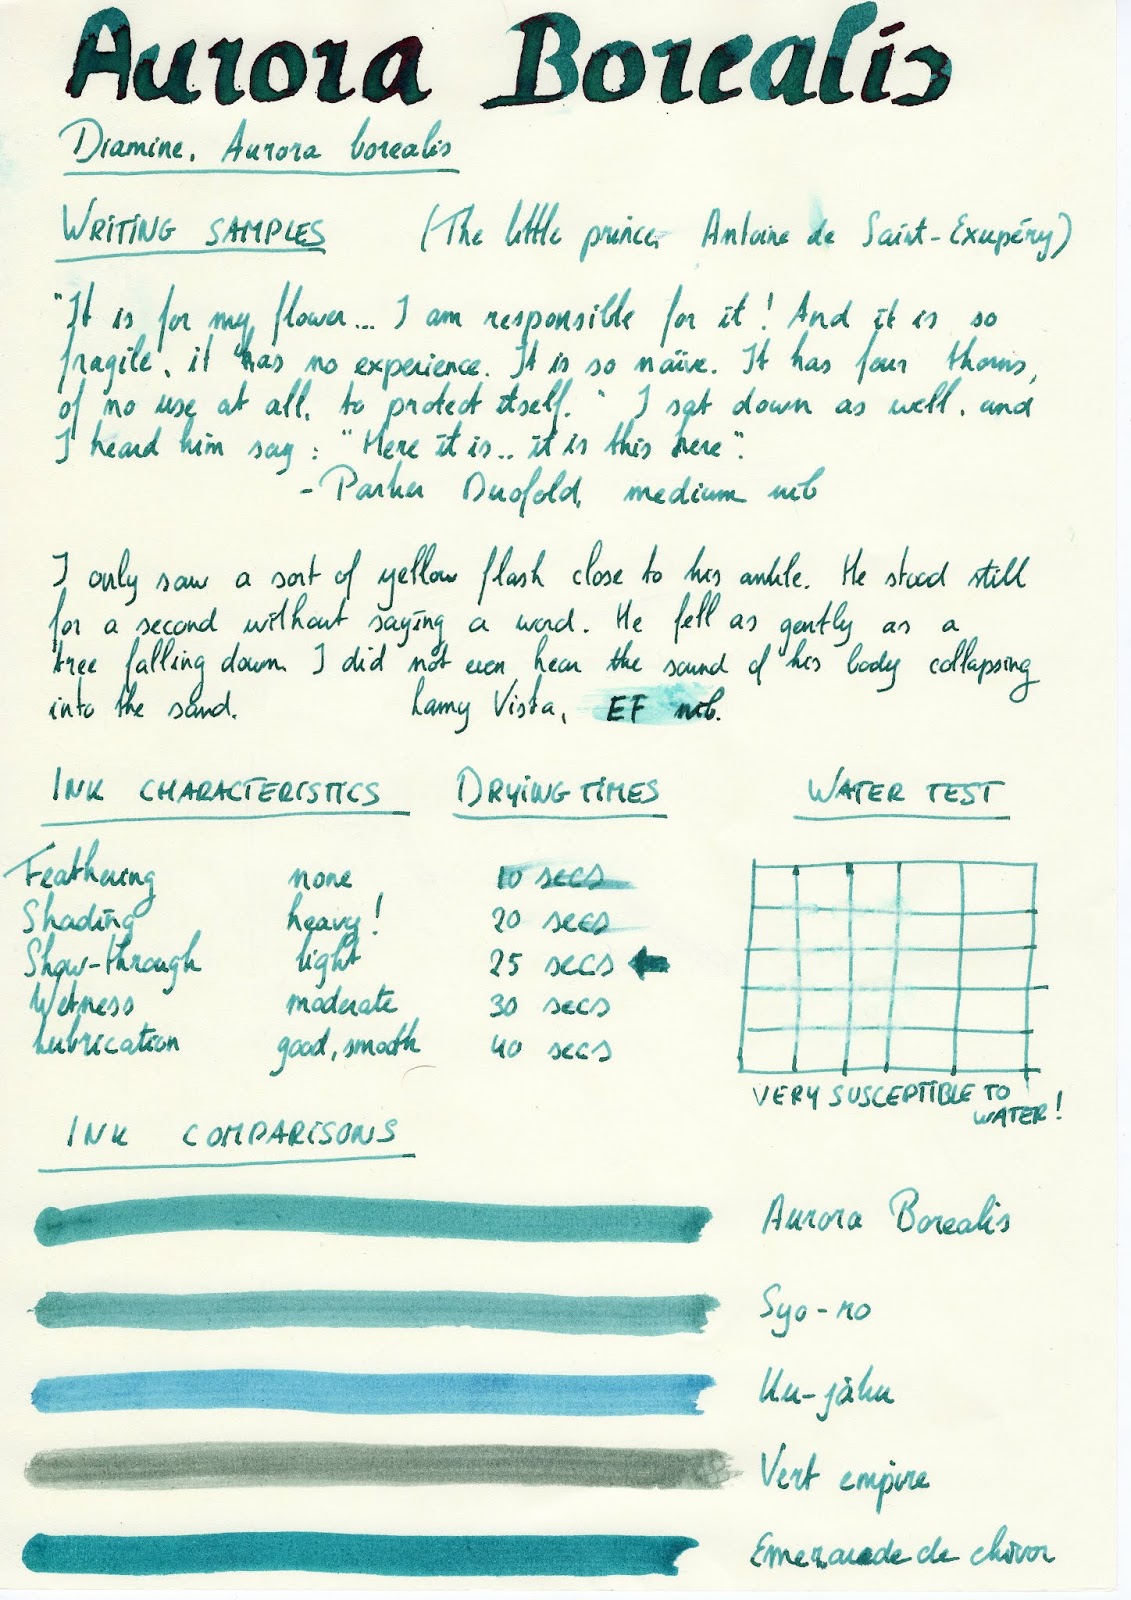 Aurora Borealis
Diamine, Aurora borealis
WRITING SAMPLES (The little prince, Antoine de Saint-Exupéry)
"It is for my flower... I am responsible for it! And it is so
fragile, it has no experience. It is so naïve. It has four thorns,
of no use at all, to protect itself." I sat down as well, and
I heard him say: "Here it is.. it is this here".
- Parker Duofold, medium nib
I only saw a sort of yellow flash close to his ankle. He stood still
for a second without saying a word. He fell as gently as a
tree falling down. I did not even hear the sound of his body collapsing
into the sand. Lamy Vista, EF nib.
INK CHARACTERISTICS DRYING TIMES WATER TEST
Feathering none 10 secs
Shading heavy! 20 secs
Show-through light 25 secs
Wetness moderate 30 secs
Lubrication good, smooth 40 secs
VERY SUSCEPTIBLE TO
WATER!
INK COMPARISONS
Aurora Borealis
Syo-ro
Ku-jaku
Vert empire
Emeraude de chivor